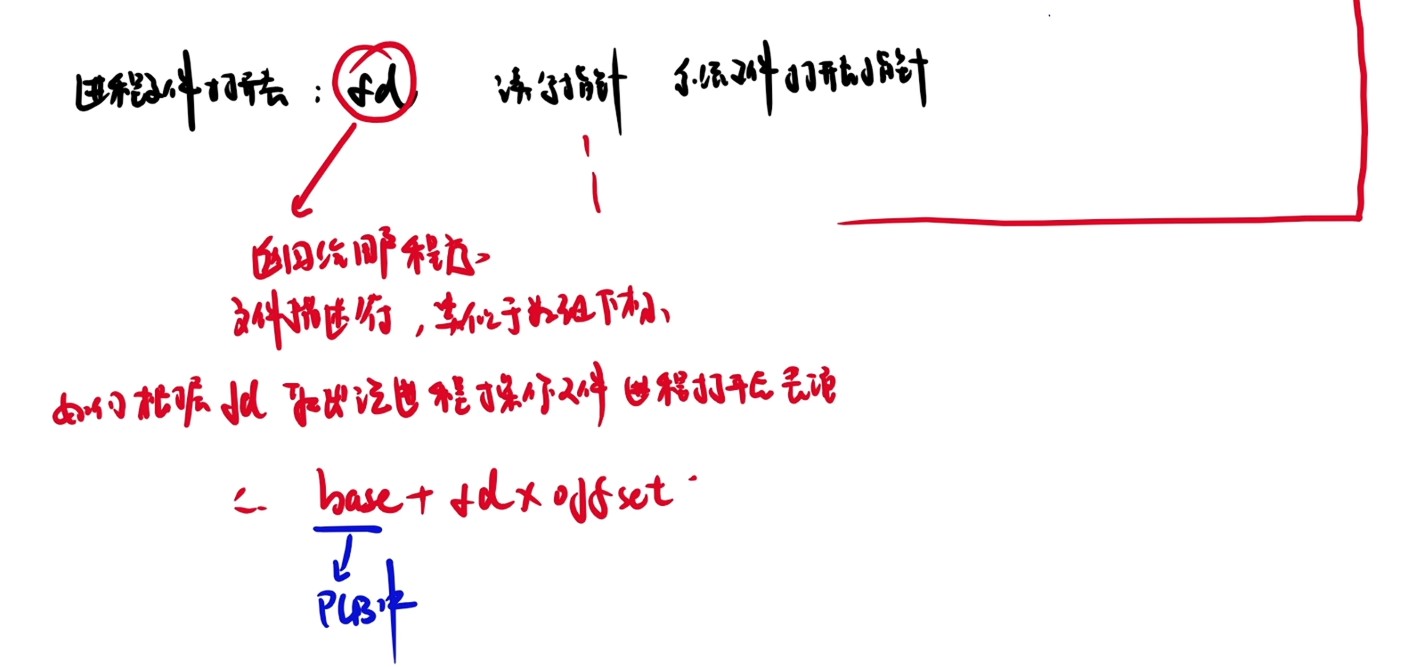 进程文件打开表：fd 读写指针 系统文件打开表指针
返回给用户程序、
文件描述符，类似于数组下标、
我们根据fd 取出该进程操作文件 进程打开表表项
= base + fd × offset
PCB中